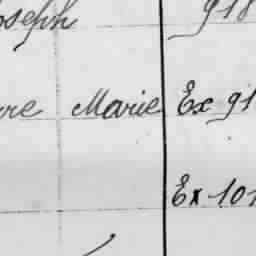 oseph 918
rre Marie Ex 91
Ex 101